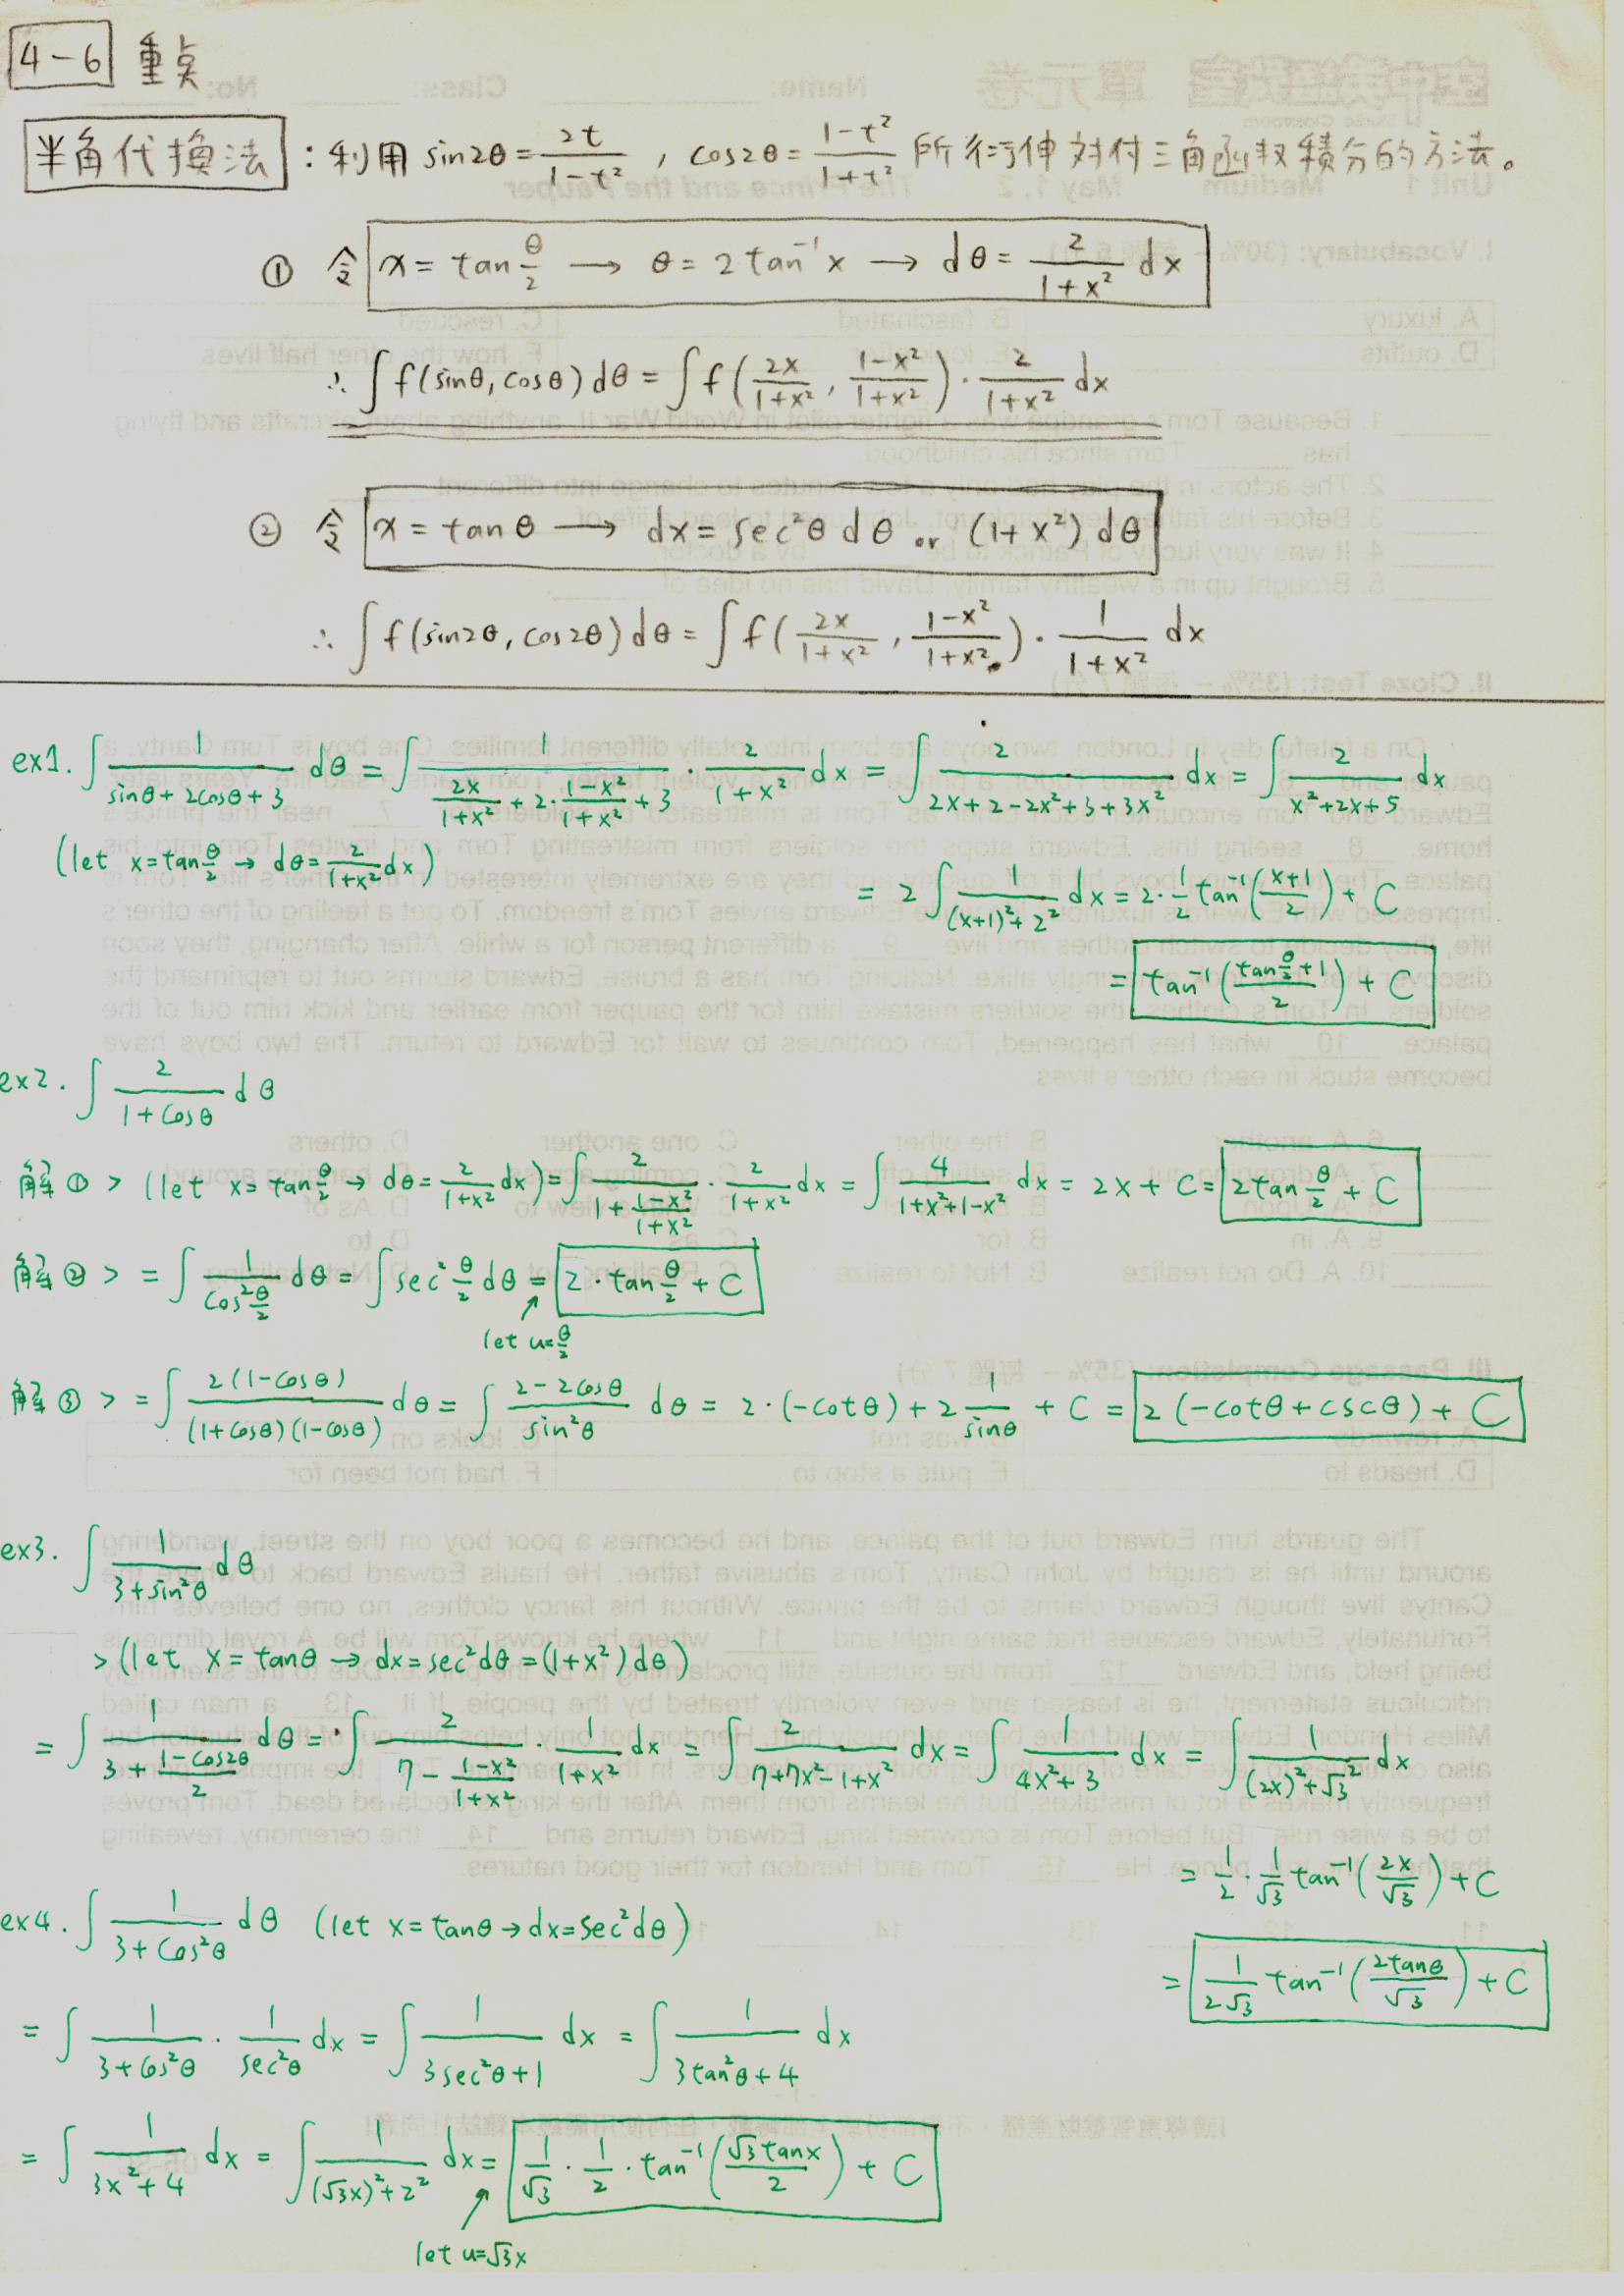 4-6 重点
半角代換法 : 利用 sin2θ = 2t/(1-t²) , cos2θ = (1-t²)/(1+t²) 所衍伸対付三角函数積分的方法。
① 令 x = tan θ/2 → θ = 2tan⁻¹x → dθ = 2/(1+x²) dx
∴ ∫f(sinθ, cosθ)dθ = ∫f(2x/(1+x²), (1-x²)/(1+x²)) · 2/(1+x²) dx
② 令 x = tanθ → dx = sec²θ dθ or (1+x²)dθ
∴ ∫f(sin2θ, cos2θ)dθ = ∫f(2x/(1+x²), (1-x²)/(1+x²)) · 1/(1+x²) dx
ex1. ∫ 1/(sinθ+2cosθ+3) dθ = ∫ 1/(2x/(1+x²) + 2·(1-x²)/(1+x²) + 3) · 2/(1+x²) dx = ∫ 2/(2x+2-2x²+3+3x²) dx = ∫ 2/(x²+2x+5) dx
(let x=tan θ/2 → dθ = 2/(1+x²) dx)
= 2∫ 1/((x+1)²+2²) dx = 2·1/2 tan⁻¹((x+1)/2) + C
= tan⁻¹((tan θ/2 +1)/2) + C
ex2. ∫ 2/(1+cosθ) dθ
解① > (let x=tan θ/2 → dθ = 2/(1+x²) dx) = ∫ 2/(1+(1-x²)/(1+x²)) · 2/(1+x²) dx = ∫ 4/(1+x²+1-x²) dx = 2x + C = 2tan θ/2 + C
解② > = ∫ 1/(cos² θ/2) dθ = ∫ sec² θ/2 dθ = 2·tan θ/2 + C
let u=θ/2
解③ > = ∫ 2(1-cosθ)/((1+cosθ)(1-cosθ)) dθ = ∫ (2-2cosθ)/sin²θ dθ = 2·(-cotθ) + 2 1/sinθ + C = 2(-cotθ+cscθ) + C
ex3. ∫ 1/(3+sin²θ) dθ
> (let x = tanθ → dx = sec²dθ = (1+x²)dθ)
= ∫ 1/(3+(1-cos2θ)/2) dθ = ∫ 2/(7-(1-x²)/(1+x²)) · 1/(1+x²) dx = ∫ 2/(7+7x²-1+x²) dx = ∫ 1/(4x²+3) dx = ∫ 1/((2x)²+√3²) dx
= 1/2 · 1/√3 tan⁻¹(2x/√3) + C
= 1/(2√3) tan⁻¹(2tanθ/√3) + C
ex4. ∫ 1/(3+cos²θ) dθ (let x=tanθ → dx=sec²dθ)
= ∫ 1/(3+cos²θ) · 1/sec²θ dx = ∫ 1/(3sec²θ+1) dx = ∫ 1/(3tan²θ+4) dx
= ∫ 1/(3x²+4) dx = ∫ 1/((√3x)²+2²) dx = 1/√3 · 1/2 · tan⁻¹(√3tanx/2) + C
let u=√3x